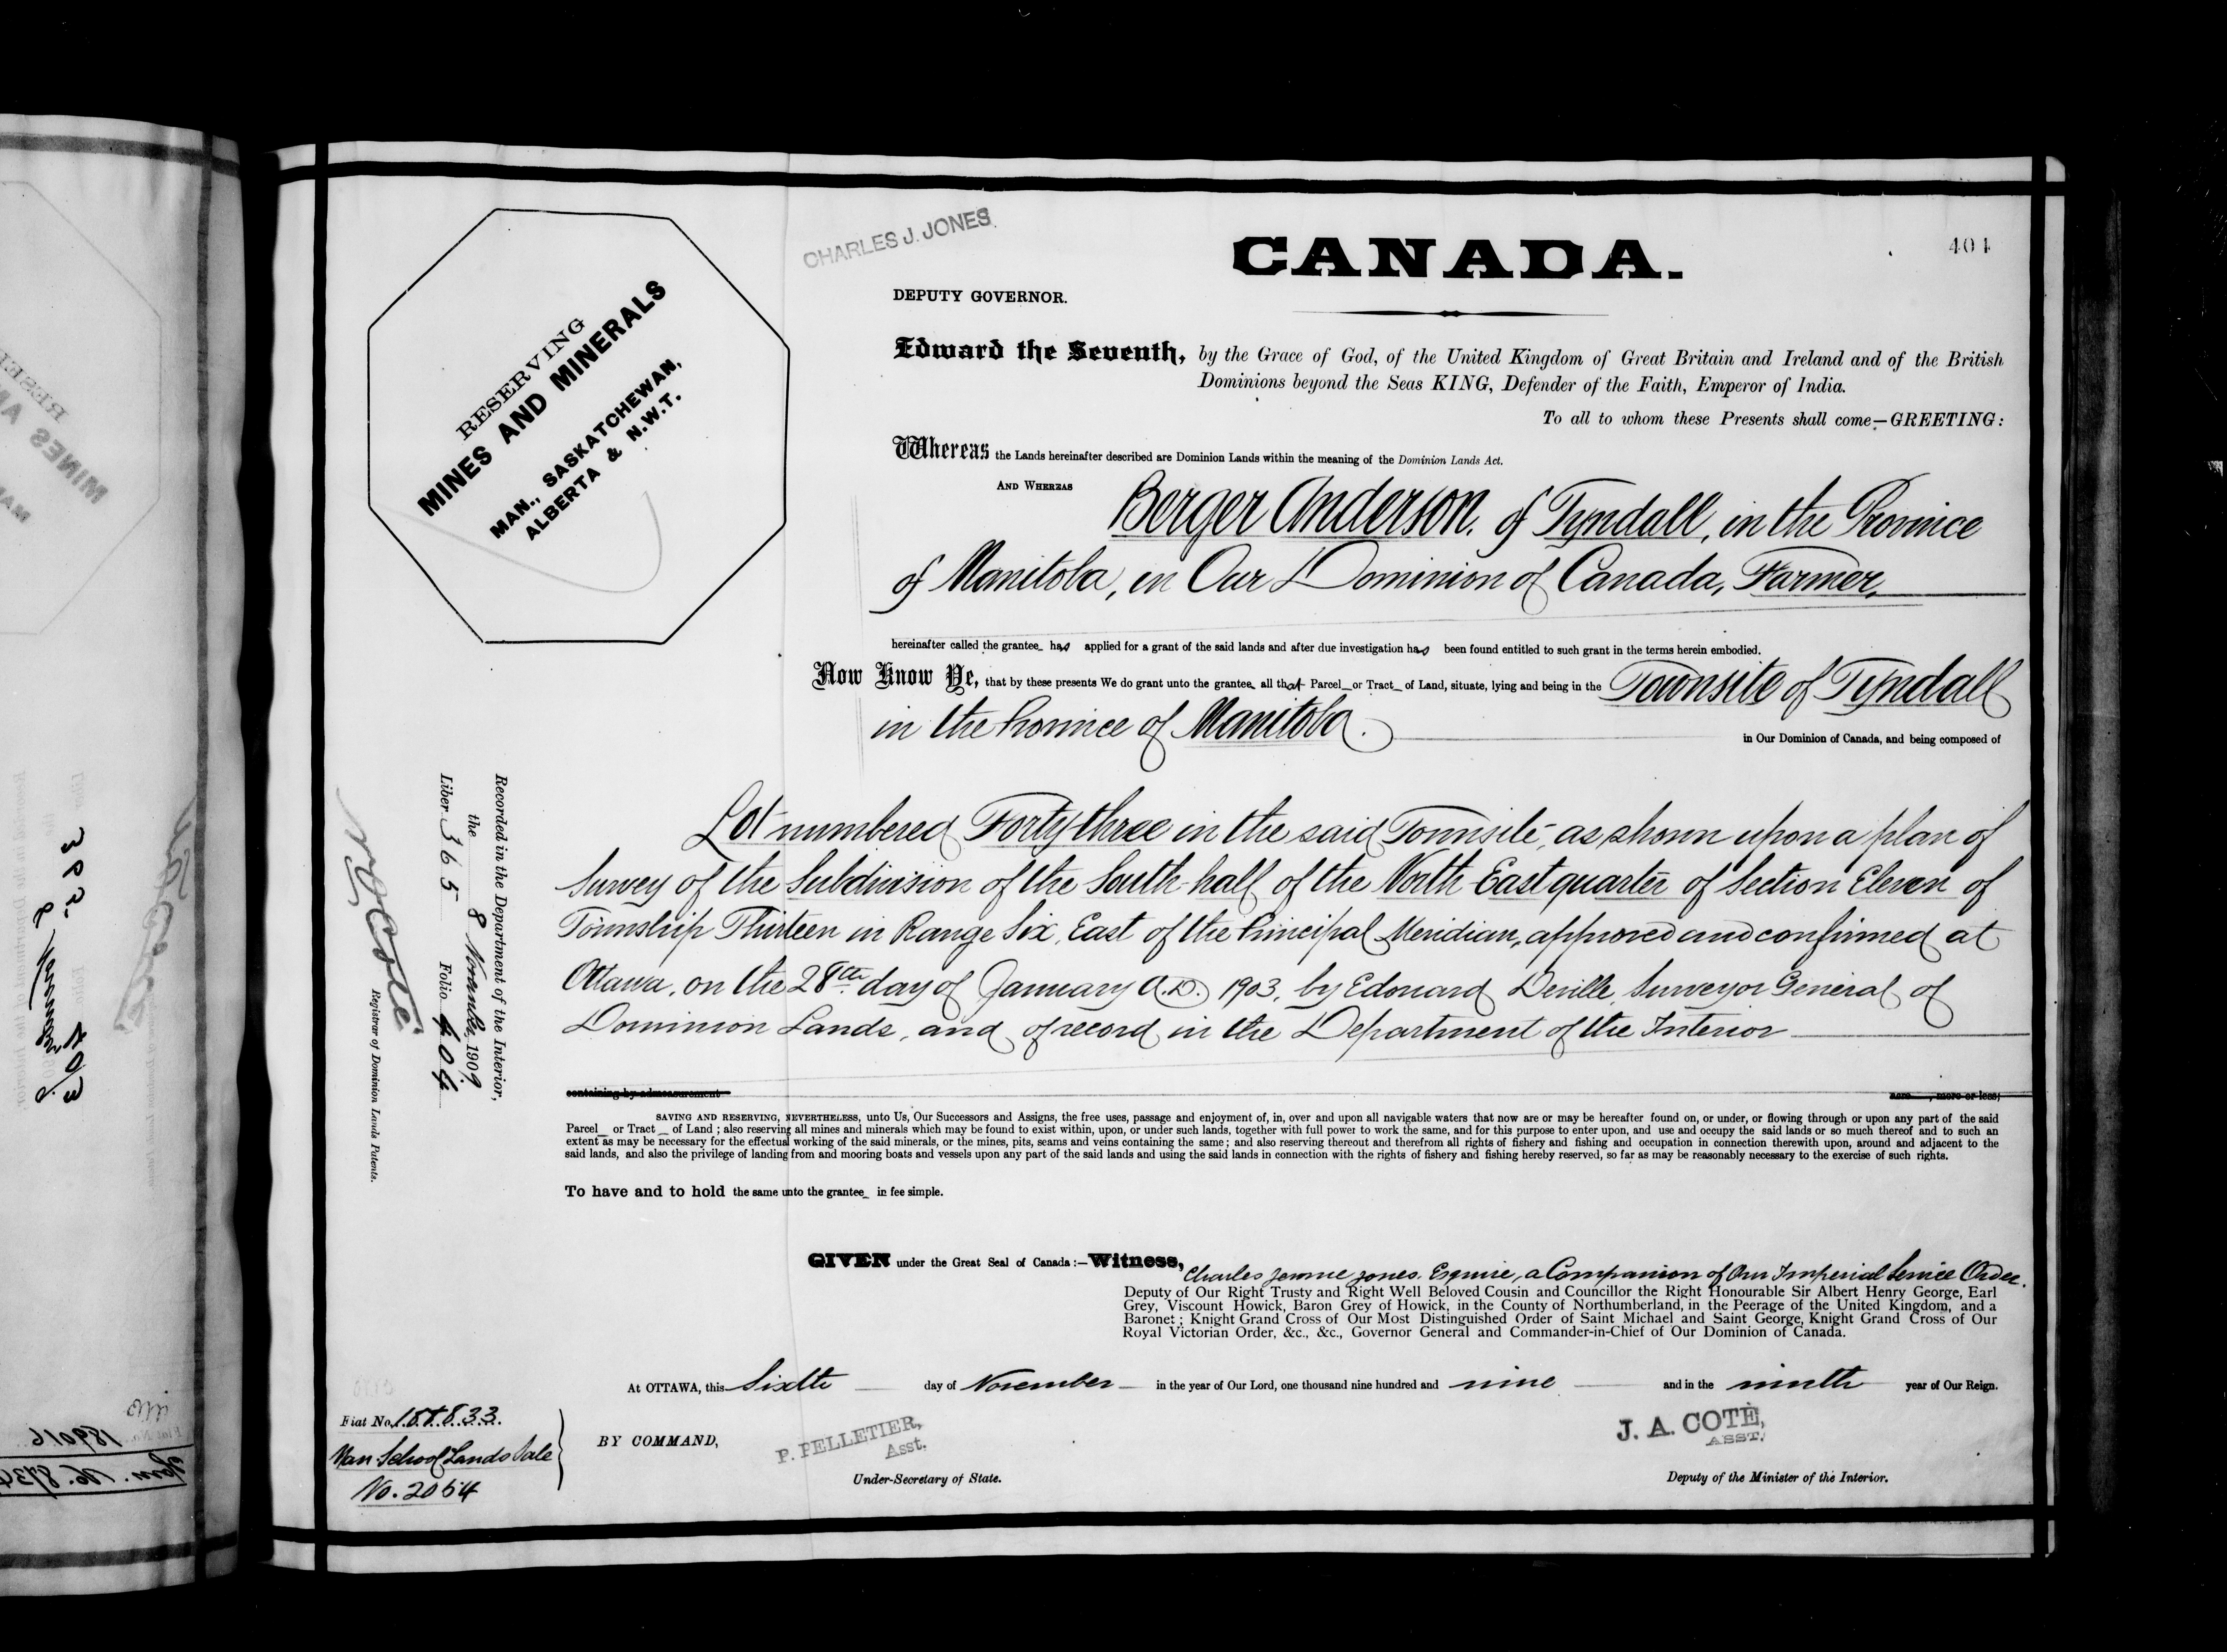 CHARLES J. JONES.
CANADA.
404
DEPUTY GOVERNOR.
RESERVING
MINES AND MINERALS
MAN., SASKATCHEWAN,
ALBERTA & N.W.T.
Edward the Seventh, by the Grace of God, of the United Kingdom of Great Britain and Ireland and of the British
Dominions beyond the Seas KING, Defender of the Faith, Emperor of India.
To all to whom these Presents shall come—GREETING:
Whereas the Lands hereinafter described are Dominion Lands within the meaning of the Dominion Lands Act.
AND WHEREAS Berger Anderson, of Tyndall, in the Province
of Manitoba, in Our Dominion of Canada, Farmer,
hereinafter called the grantee has applied for a grant of the said lands and after due investigation has been found entitled to such grant in the terms herein embodied.
Now Know Ye, that by these presents We do grant unto the grantee all that Parcel or Tract of Land, situate, lying and being in the Townsite of Tyndall
in the Province of Manitoba.
in Our Dominion of Canada, and being composed of
Lot numbered Forty three in the said Townsite, as shown upon a plan of
Survey of the Subdivision of the South half of the North East quarter of Section Eleven of
Township Thirteen in Range Six, East of the Principal Meridian, approved and confirmed at
Ottawa, on the 28th day of January A.D. 1903, by Edouard Deville, Surveyor General of
Dominion Lands, and of record in the Department of the Interior
containing by admeasurement acre , more or less;
SAVING AND RESERVING, NEVERTHELESS, unto Us, Our Successors and Assigns, the free uses, passage and enjoyment of, in, over and upon all navigable waters that now are or may be hereafter found on, or under, or flowing through or upon any part of the said
Parcel or Tract of Land ; also reserving all mines and minerals which may be found to exist within, upon, or under such lands, together with full power to work the same, and for this purpose to enter upon, and use and occupy the said lands or so much thereof and to such an
extent as may be necessary for the effectual working of the said minerals, or the mines, pits, seams and veins containing the same ; and also reserving thereout and therefrom all rights of fishery and fishing and occupation in connection therewith upon, around and adjacent to the
said lands, and also the privilege of landing from and mooring boats and vessels upon any part of the said lands and using the said lands in connection with the rights of fishery and fishing hereby reserved, so far as may be reasonably necessary to the exercise of such rights.
To have and to hold the same unto the grantee in fee simple.
GIVEN under the Great Seal of Canada :— Witness, Charles Jonne Jones, Esquire, a Companion of Our Imperial Service Order.
Deputy of Our Right Trusty and Right Well Beloved Cousin and Councillor the Right Honourable Sir Albert Henry George, Earl
Grey, Viscount Howick, Baron Grey of Howick, in the County of Northumberland, in the Peerage of the United Kingdom, and a
Baronet ; Knight Grand Cross of Our Most Distinguished Order of Saint Michael and Saint George, Knight Grand Cross of Our
Royal Victorian Order, &c., &c., Governor General and Commander-in-Chief of Our Dominion of Canada.
At OTTAWA, this Sixth day of November in the year of Our Lord, one thousand nine hundred and nine and in the ninth year of Our Reign.
BY COMMAND,
P. PELLETIER,
Asst.
Under-Secretary of State.
J. A. COTÉ,
ASST.
Deputy of the Minister of the Interior.
Recorded in the Department of the Interior,
the 8 November 1909
Liber 365 Folio 404
N O Coté
Registrar of Dominion Lands Patents.
Fiat No. 188833.
Man School Lands Sale
No. 2054